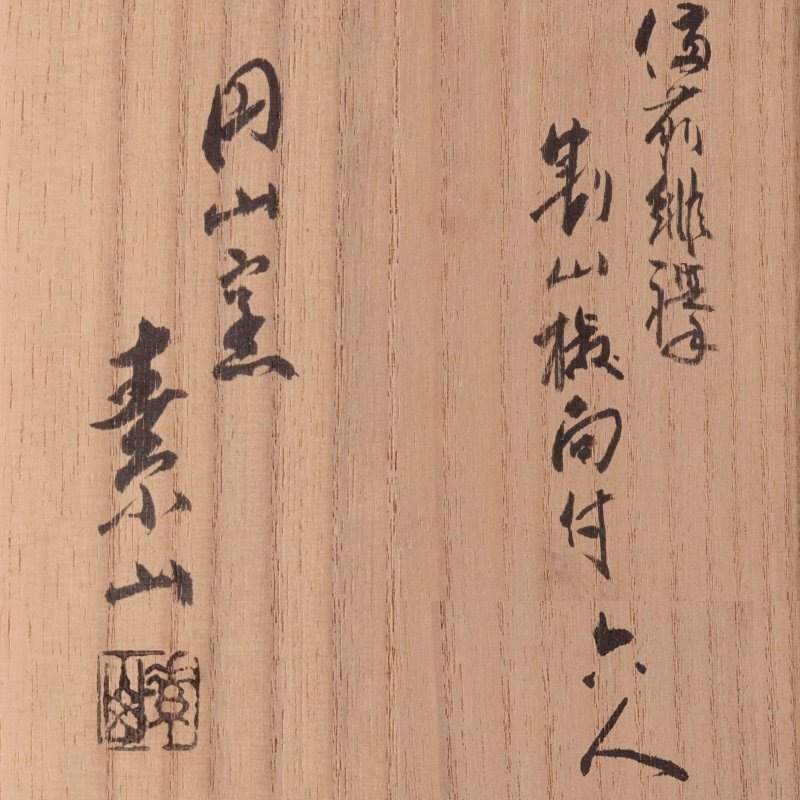 備前緋襷
割山椒向付 六人
円山窯
素山